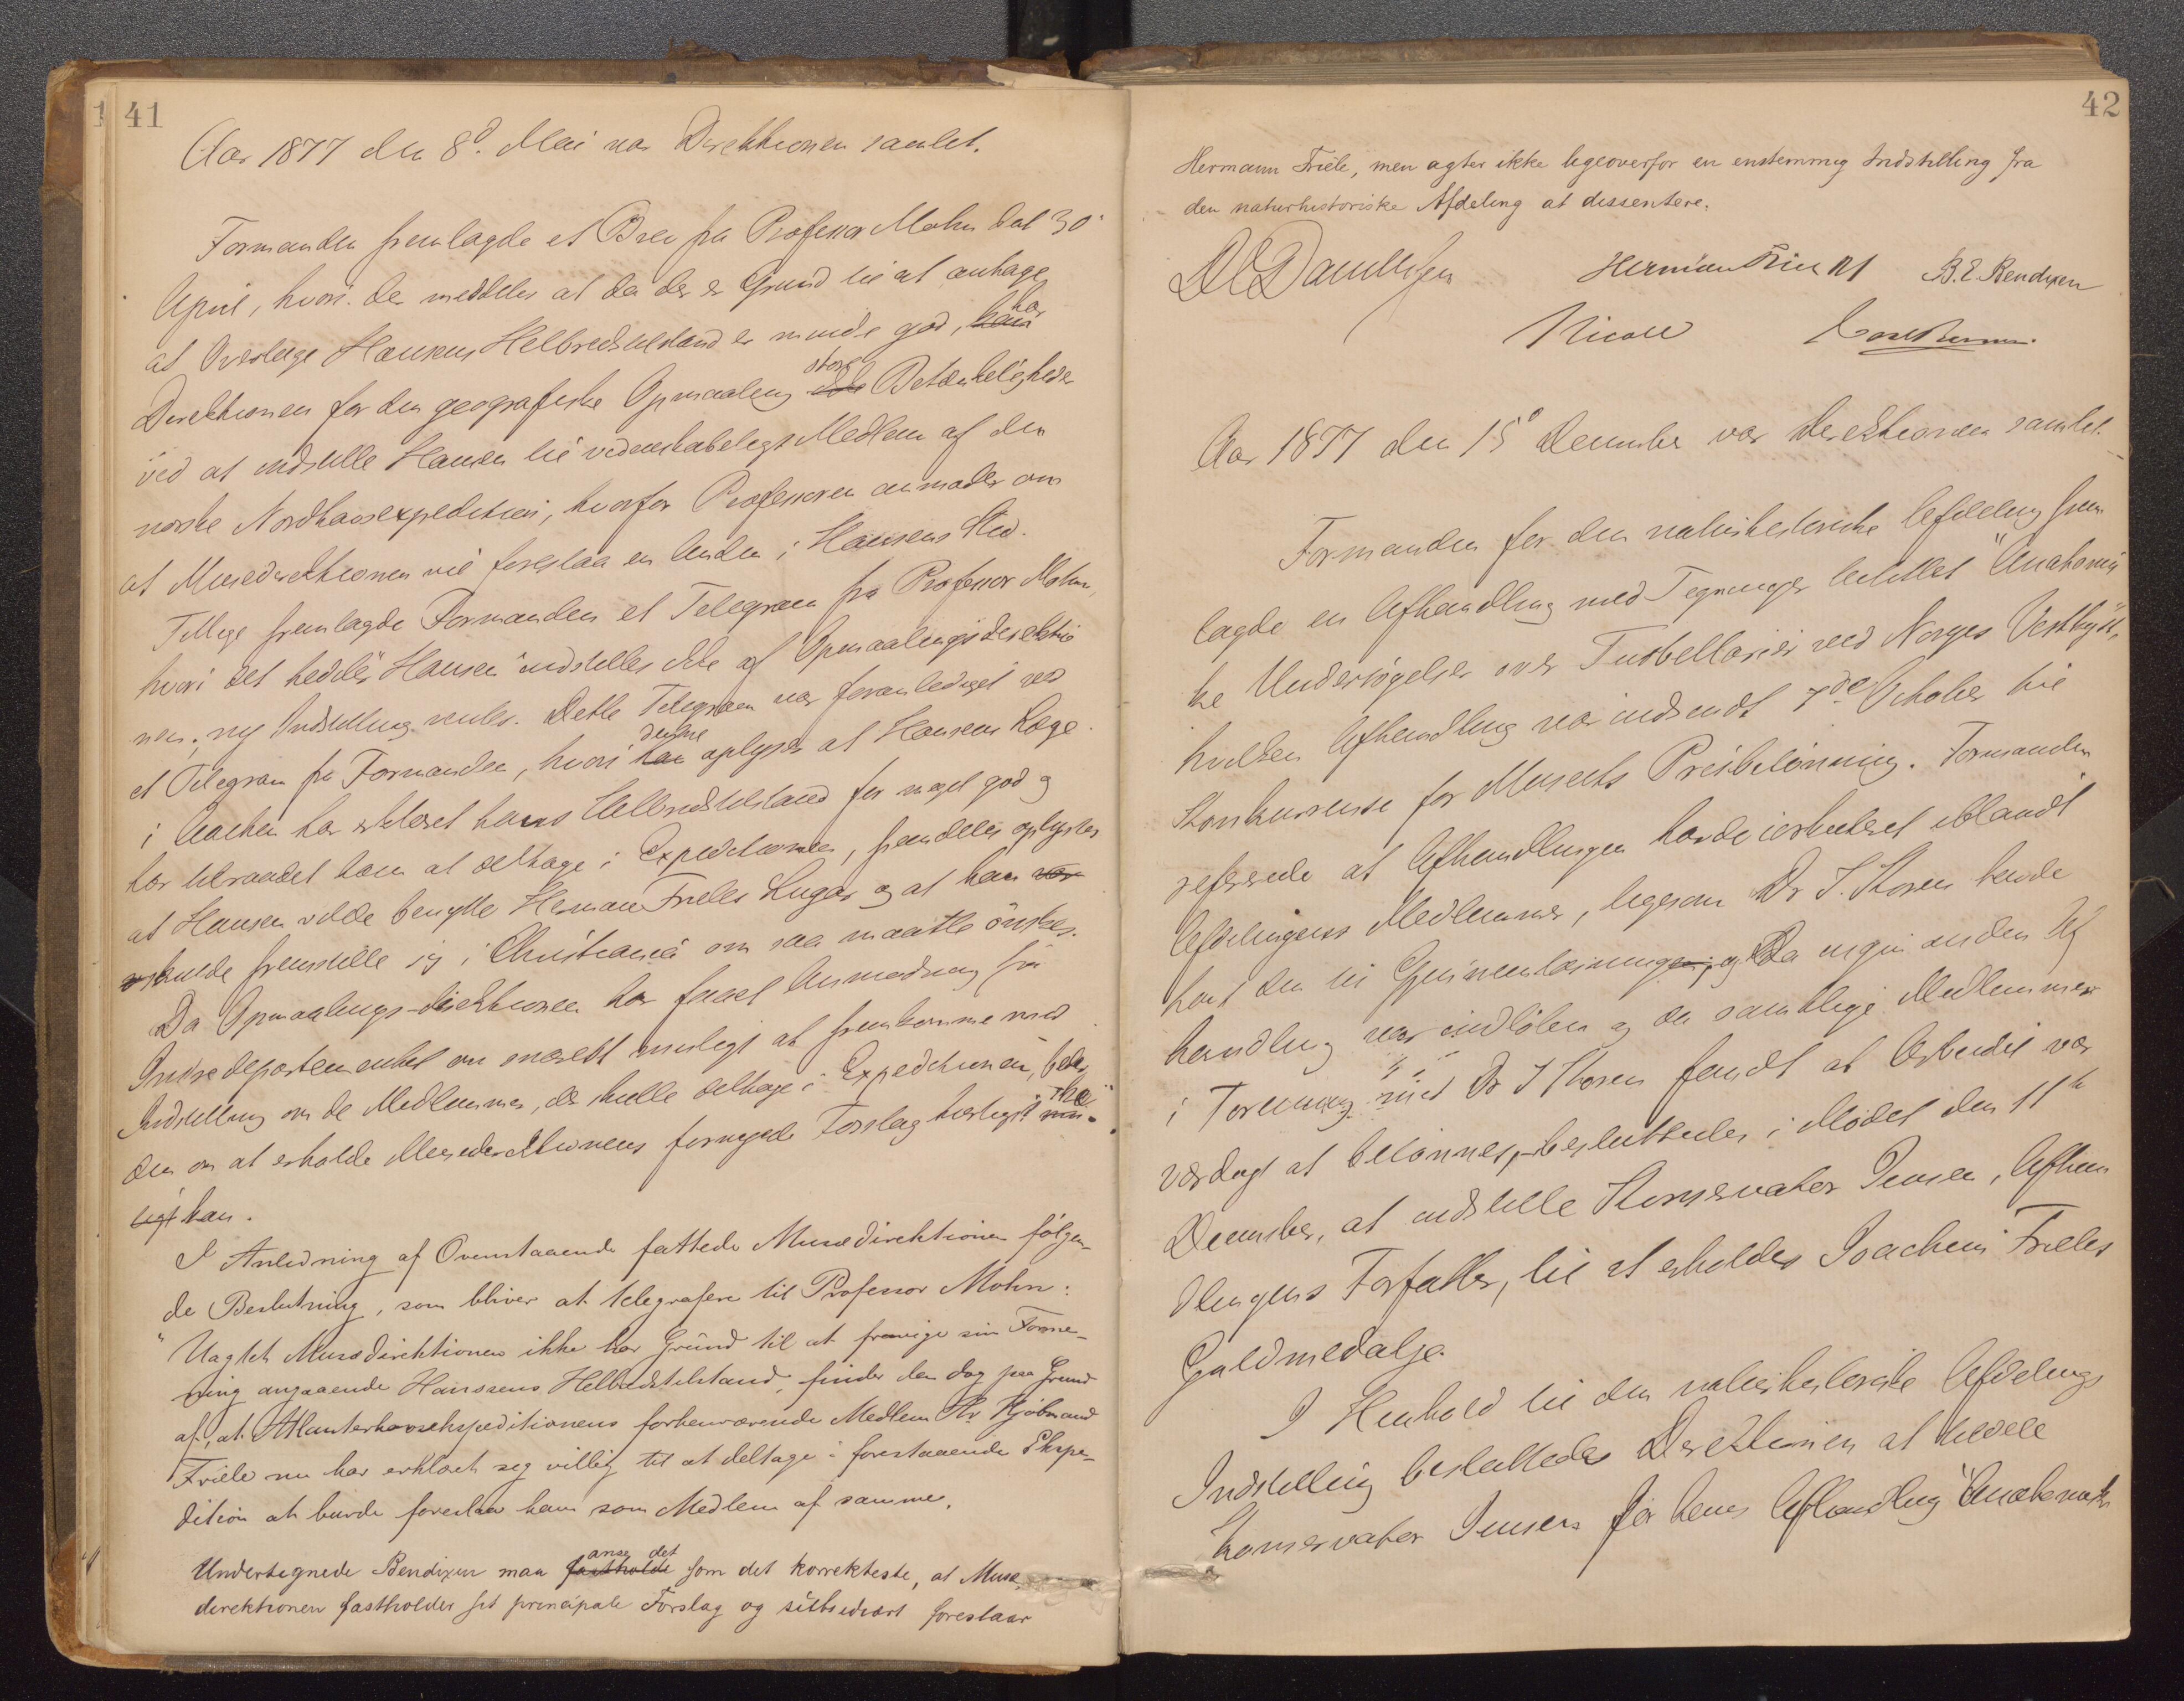 41
Aar 1877 den 8d. Mai var Direktionen samlet.
Formanden fremlagde et Brev fra Professor Mohn dat 30'
April, hvori der meddeles at da der er Grund til at antage
at Overlæge Hansens Helbredstilstand er mindre god, har
Direktionen for den geografiske Opmaaling store Betænkeligheder
ved at indstille Hansen til videnskabeligt Medlem af den
norske Nordhavsexpedition, hvorfor Professoren anmoder om
at Musedirektionen vil foreslaa en Anden i Hansens Sted.
Tillige fremlagde Formanden et Telegram fra Professor Mohn,
hvori det hedder "Hansen indstilles ikke af Opmaalingsdirektio
nen; ny Indstilling ventes. Dette Telegram var foranlediget ved
et Telegram fra Formanden, hvori denne oplyser at Hansens Læge
i Aachen har erklæret hans Helbredstilstand for meget god og
har tilraadet ham at deltage i Expeditionen, fremdeles oplystes
at Hansen vilde benytte Herman Frieles Lugar og at han
skulde fremstille sig i Christiania om saa maatte önskes.
Da Opmaalings-direktionen har faaet Anmodning fra
Indredepartementet om snarest muligt at fremkomme med
Indstilling om de Medlemmer, der skulle deltage i Expeditionen, beder
den om at erholde Musedirektionens fornyede Forslag
I Anledning af Ovenstaaende fattede Musædirektionen fölgen-
de Beslutning, som bliver at telegrafere til Professor Mohn:
"Uagtet Musædirektionen ikke har Grund til at fravige sin Forme-
ning angaaende Hanssens Helbredstilstand, finder den dog paa Grund
af, at Atlanterhavsekspeditionens forhenværende Medlem Hr Kjöbmand
Friele nu har erklæret sig villig til at deltage i forestaaende Ekspe-
dition at burde foreslaa ham som Medlem af samme.
Undertegnede Bendixen maa anse det som det korrekteste, at Muse-
direktionen fastholder sit principale Forslag og subsidiært foreslaar
42
Hermann Friele, men agter ikke ligeoverfor en enstemmig Indstilling fra
den naturhistoriske Afdeling at dissentere.
DCDanielssen Herman Friele B.E. Bendixen
Nicoll
Aar 1877 den 15d December var Direktionen samlet.
Formanden for den naturhistoriske Afdeling frem
lagde en Afhandling med Tegninger betitlet "Anatomis
ke Undersögelser over Turbellarier ved Norges Vestkyst",
hvilken Afhandling var indsendt 7de Oktober til
Konkurrense for Musæets Prisbelönning. Formanden
refererede at Afhandlingen havde cirkuleret iblandt
Afdelingens Medlemmer, ligesom Dr J. Koren havde
havt den til Gjennemlæsning, og Da ingen anden Af
handling var indlöben og da samtlige Medlemmer
i Forening med Dr J Koren fandt at Arbeidet var
værdigt at belönnes, besluttedes i Mödet den 11te
December, at indstille Konservator Jensen, Afhan
dlingens Forfatter, til at erholde Joachim Frieles
Guldmedalje.
I Henhold til den naturhistoriske Afdelings
Indstilling besluttede Direktionen at tildele
Konservator Jensen for hans Afhandling "Anatomiske